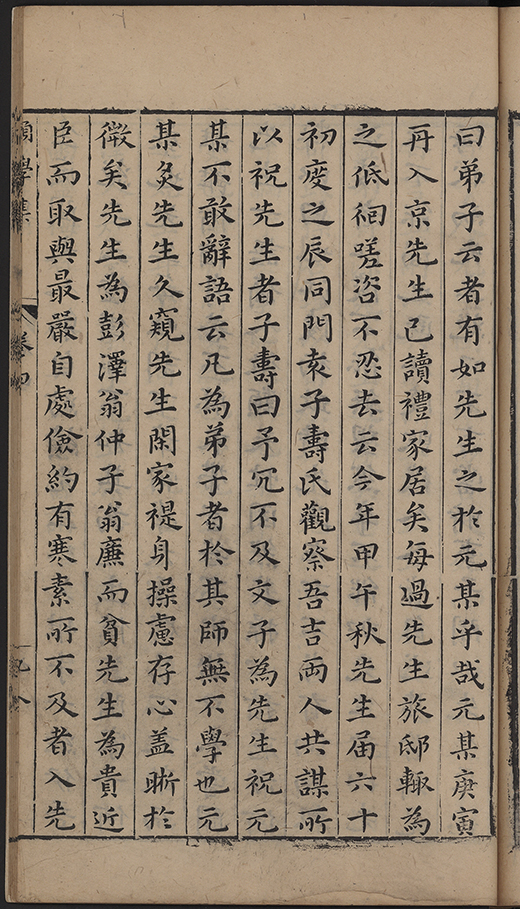 曰弟子云者有如先生之於元某乎哉元某庚寅
再入京先生已讀禮家居矣每過先生旅邸輒為
之低徊嗟咨不忍去云今年甲午秋先生届六十
初度之辰同門袁子壽氏觀察吾吉兩人共謀所
以祝先生者子壽曰予冗不及文子為先生祝元
某不敢辭語云凡為弟子者於其師無不學也元
某炙先生久窺先生閑家禔身操慮存心蓋晰於
微矣先生為彭澤翁仲子翁廉而貧先生為貴近
臣而取與最嚴自處儉約有寒素所不及者入先
學集
卷四